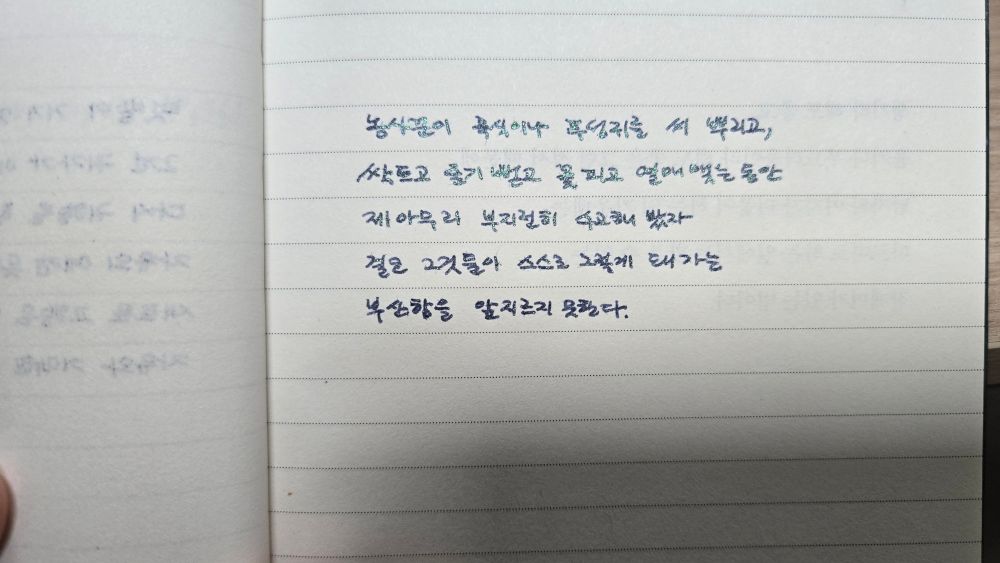 농사꾼이 곡식이나 푸성귀를 씨 뿌리고,
싹트고 줄기 뻗고 꽃피고 열매 맺는 동안
제아무리 부지런히 수고해 봤자
결코 그것들이 스스로 그렇게 돼 가는
부산함을 앞지르지 못한다.